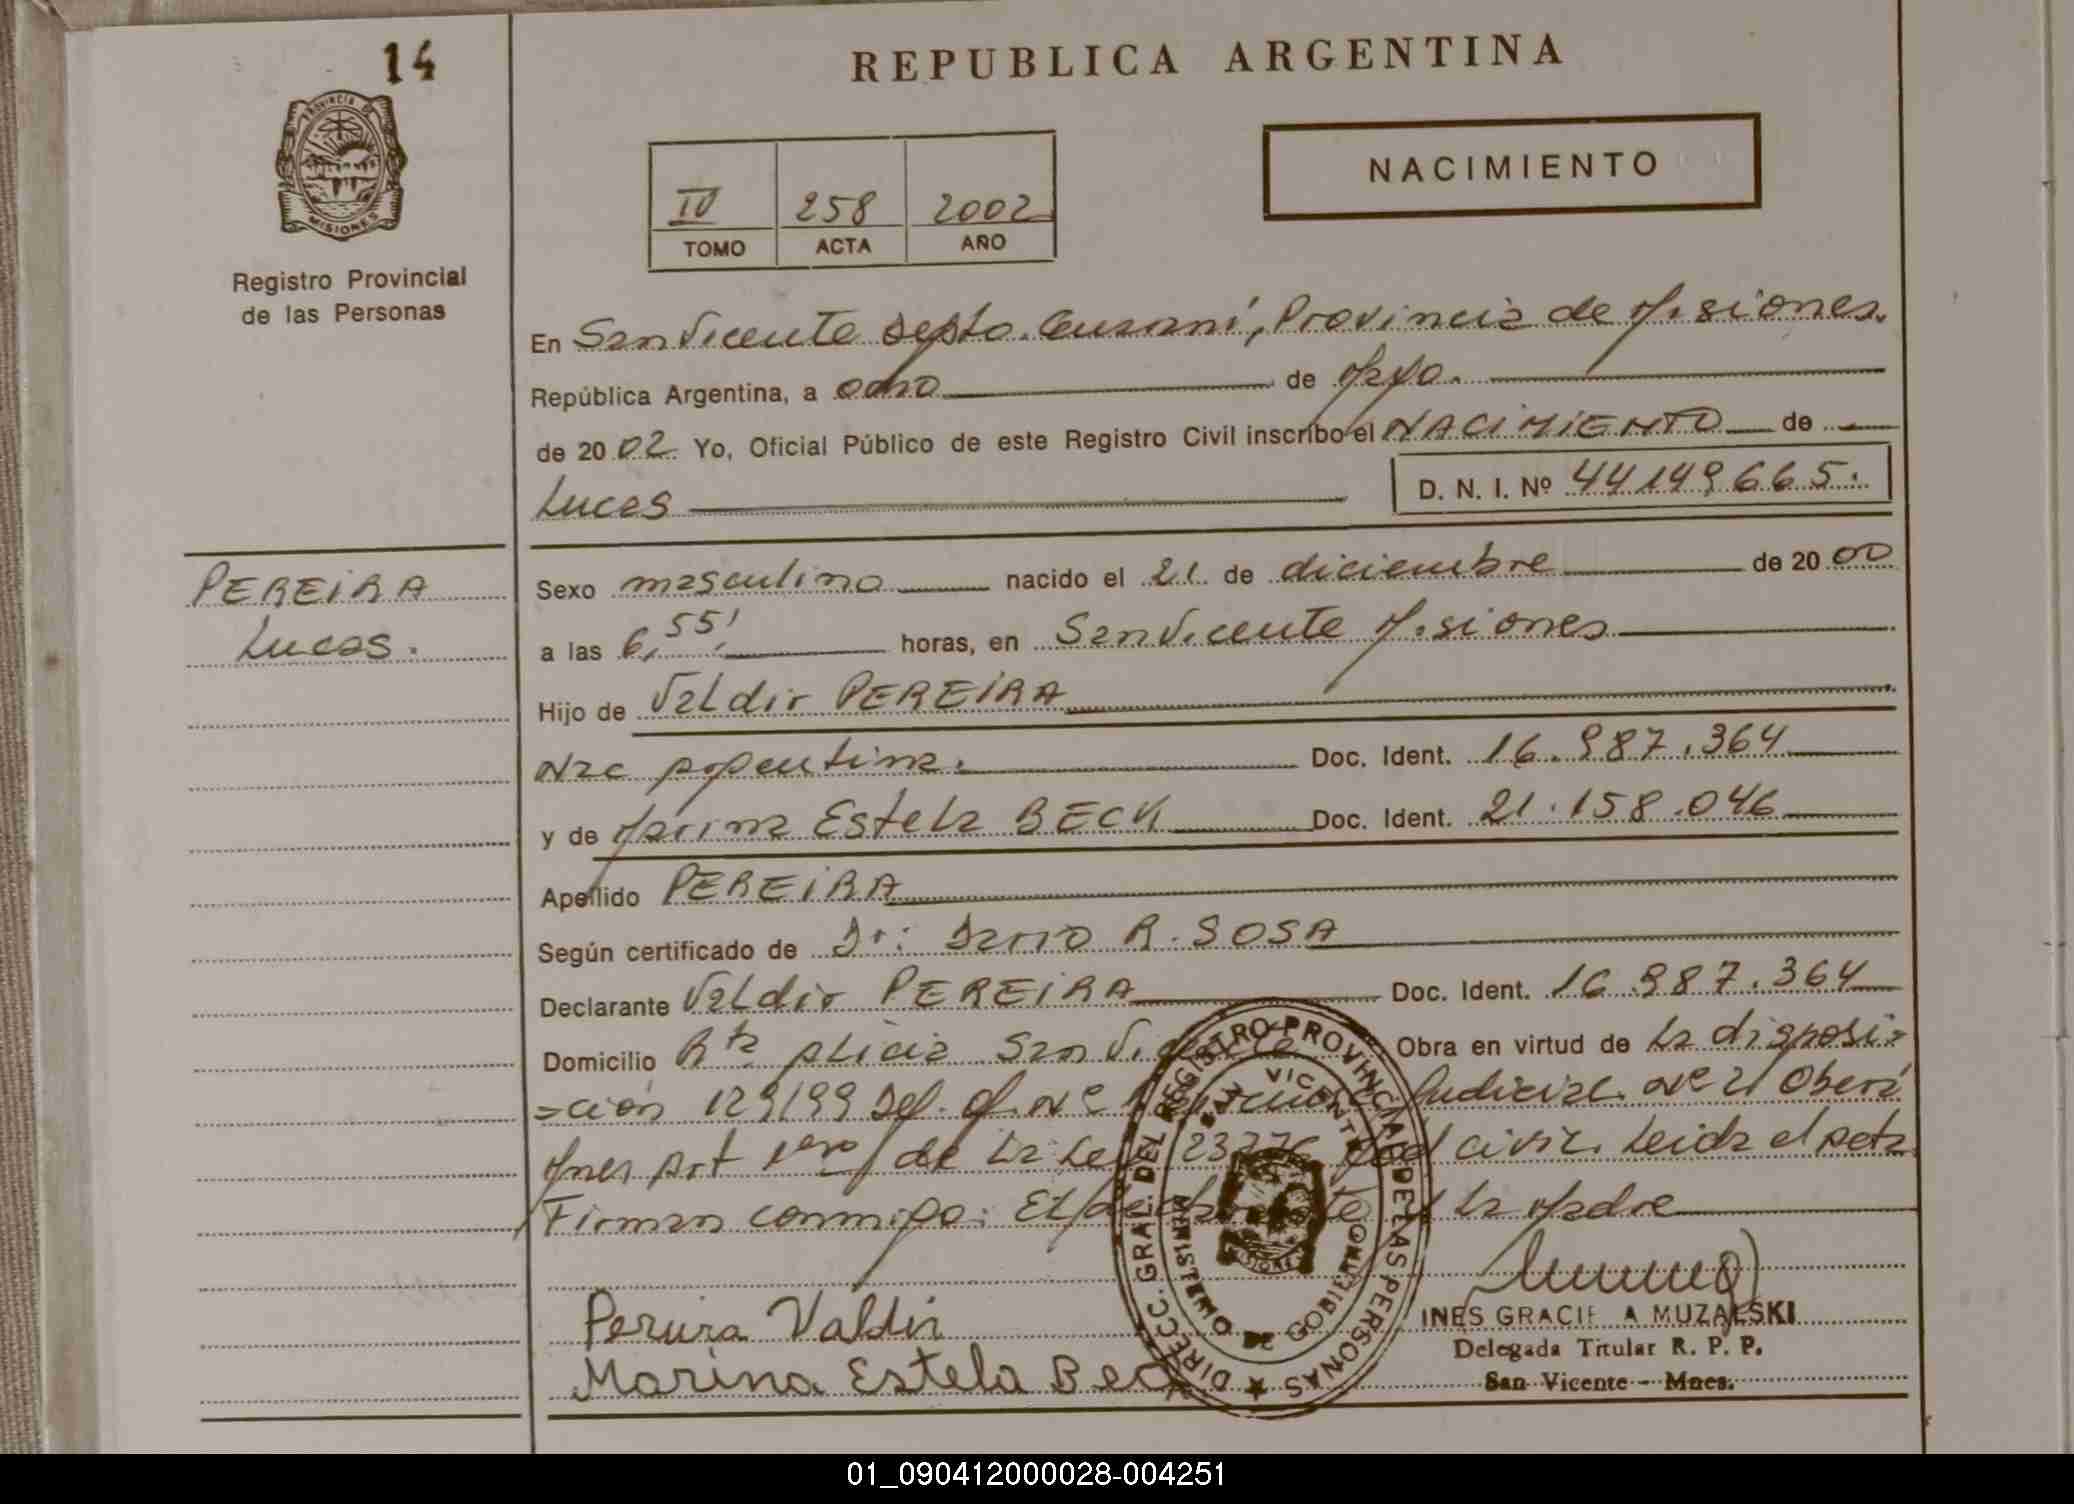 14
REPUBLICA ARGENTINA
PROVINCIA DE
MISIONES
Registro Provincial
de las Personas
IV 258 2002
TOMO ACTA AÑO
NACIMIENTO
En San Vicente Depto. Guaraní, Provincia de Misiones.
República Argentina, a ocho de Mayo.
de 2002. Yo, Oficial Público de este Registro Civil inscribo el NACIMIENTO de
Lucas D. N. I. Nº 44149665.
PEREIRA
Lucas.
Sexo masculino nacido el 21 de diciembre de 2000
a las 6,55' horas, en San Vicente Misiones
Hijo de Valdir PEREIRA
Nac Argentina. Doc. Ident. 16.987.364
y de Marina Estela BECK Doc. Ident. 21.158.046
Apellido PEREIRA
Según certificado de Dr: Dario R. SOSA
Declarante Valdir PEREIRA Doc. Ident. 16.987.364
Domicilio Rta Alicia San Vicente Obra en virtud de la disposi=
=ción 129/99 Def. Of. Nº Judicial Nº 2 Oberá
Mnes Art 1ero de la Ley 23776 civil. Leida el Acta
Firman conmigo: El declarante y la Madre
Pereira Valdir
Marina Estela Beck
DIRECC. GRAL. DEL REGISTRO PROVINCIAL DE LAS PERSONAS
SAN VICENTE
MINISTERIO DE GOBIERNO
INES GRACIELA MUZALSKI
Delegada Titular R. P. P.
San Vicente - Mnes.
01_090412000028-004251